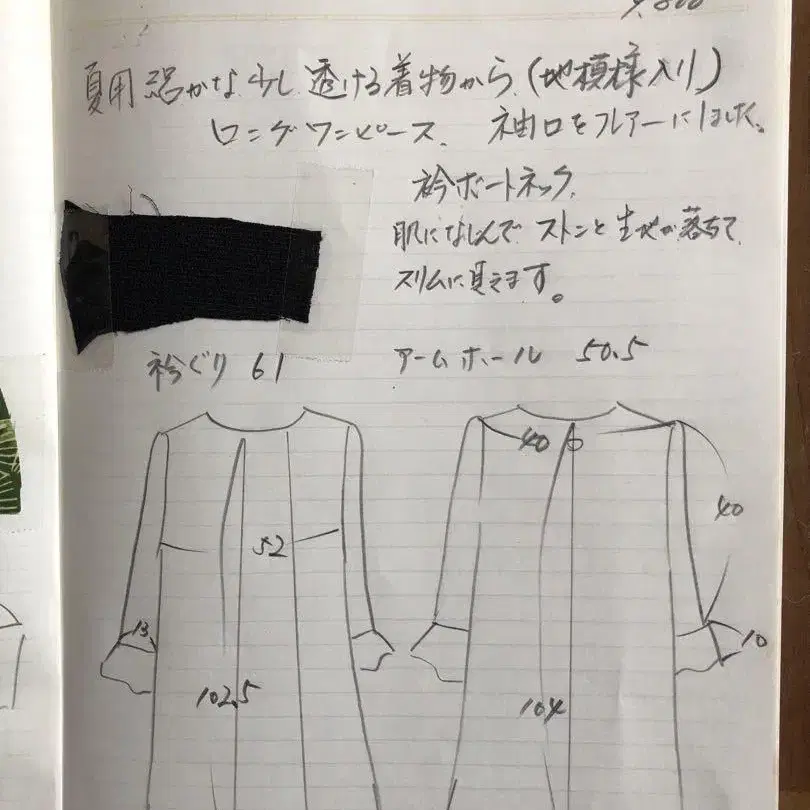 夏用 少し 透ける着物から、(地模様入り)
ロングワンピース、 袖口をフレアーにしました。
衿ボートネック、
肌になじんで ストンと生地が落ちて、
スリムに見えます。
衿ぐり 61 アームホール 50.5
40
40
52
13
10
102.5 104